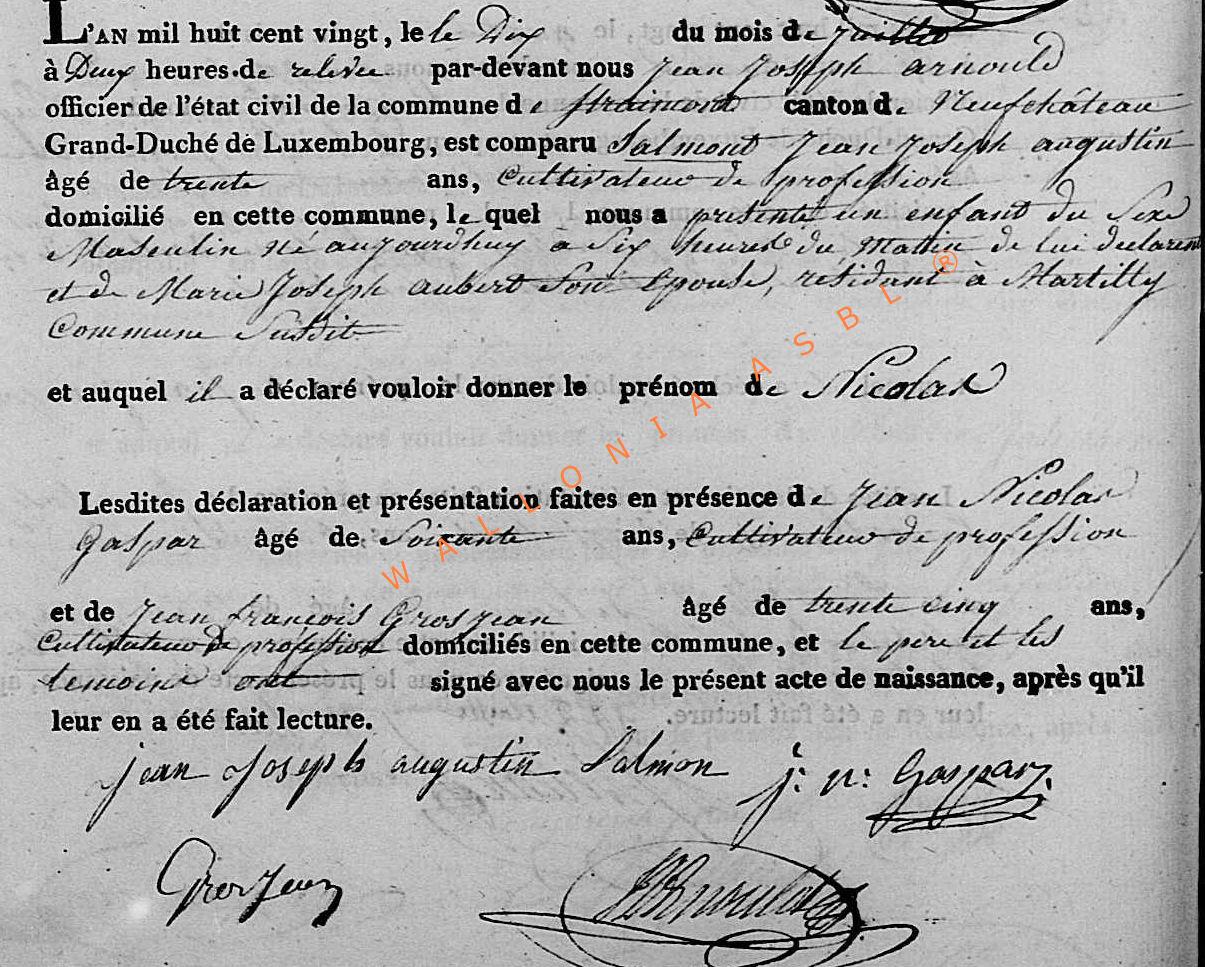 L'AN mil huit cent vingt, le le Dix du mois de juillet
à Deux heures de relevée par-devant nous jean joseph arnould
officier de l'état civil de la commune de straimont canton de Neufchâteau
Grand-Duché de Luxembourg, est comparu Salmont jean joseph augustin
âgé de trente ans, Cultivateur de profession
domicilié en cette commune, lequel nous a presenté un enfant du Sexe
Masculin né aujourdhuy à Six heures du Matin de lui declarent
et de Marie joseph aubert Son Epouse, residant à Martilly
Commune Susdit
et auquel il a déclaré vouloir donner le prénom de Nicolas
Lesdites déclaration et présentation faites en présence de jean Nicolas
Gaspar âgé de Soixante ans, Cultivateur de profession
et de jean francois Grosjean âgé de trente cinq ans,
Cultivateur de profession domiciliés en cette commune, et le pere et les
temoins ont signé avec nous le présent acte de naissance, après qu'il
leur en a été fait lecture.
jean joseph augustin Salmon j: n: Gaspar
Grosjean
JJ Arnould
WALLONIA ASBL ®